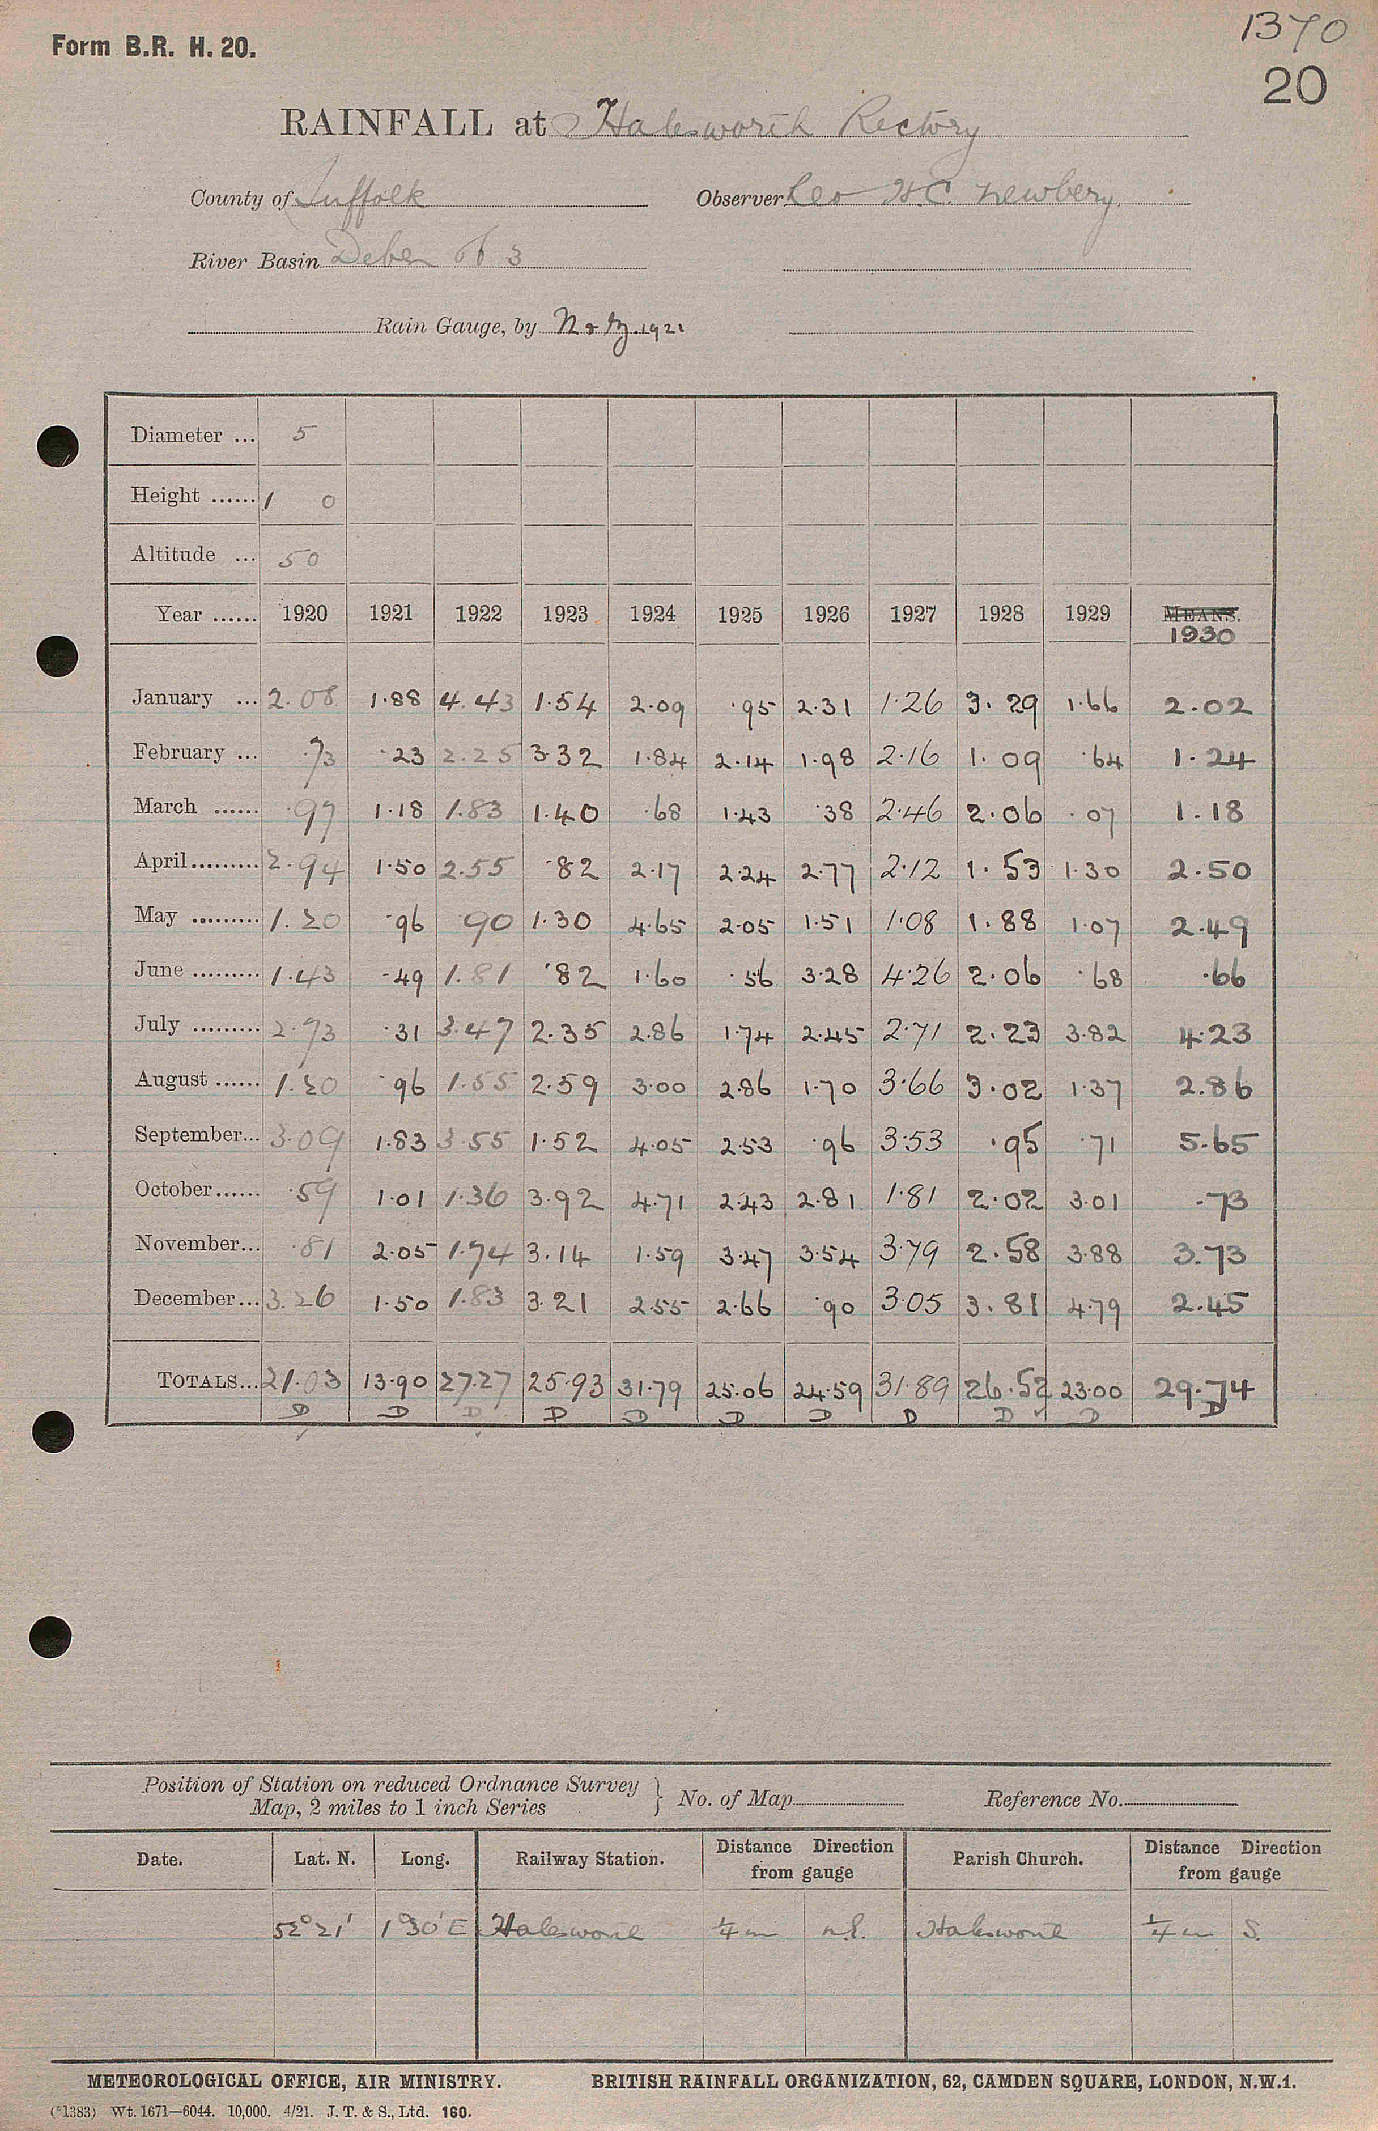 1370
Form B.R. H. 20.
20
RAINFALL at Halesworth Rectory
County of Suffolk Observer Leo H.C. Newbery
River Basin Deben 3
Rain Gauge, by N & Z 1921
Diameter ... 5
Height ...... 1 0
Altitude ... 50
Year ...... 1920 1921 1922 1923 1924 1925 1926 1927 1928 1929 MEANS. 1930
January ... 2.08 1.88 4.43 1.54 2.09 .95 2.31 1.26 3.29 1.66 2.02
February ... .73 .23 2.25 3.32 1.84 2.14 1.98 2.16 1.09 .64 1.24
March ...... .97 1.18 1.83 1.40 .68 1.43 .38 2.46 2.06 .07 1.18
April......... 2.94 1.50 2.55 .82 2.17 2.24 2.77 2.12 1.53 1.30 2.50
May ......... 1.20 .96 .90 1.30 4.65 2.05 1.51 1.08 1.88 1.07 2.49
June ......... 1.43 .49 1.81 .82 1.60 .56 3.28 4.26 2.06 .68 .66
July ......... 2.73 .31 3.47 2.35 2.86 1.74 2.45 2.71 2.23 3.82 4.23
August ...... 1.20 .96 1.55 2.59 3.00 2.86 1.70 3.66 3.02 1.37 2.86
September... 3.09 1.83 3.55 1.52 4.05 2.53 .96 3.53 .95 .71 5.65
October...... .59 1.01 1.36 3.92 4.71 2.43 2.81 1.81 2.02 3.01 .73
November... .81 2.05 1.74 3.14 1.59 3.47 3.54 3.79 2.58 3.88 3.73
December... 3.26 1.50 1.83 3.21 2.55 2.66 .90 3.05 3.81 4.79 2.45
TOTALS... 21.03 13.90 27.27 25.93 31.79 25.06 24.59 31.89 26.52 23.00 29.74
D D D D D D D D D D D
Position of Station on reduced Ordnance Survey
Map, 2 miles to 1 inch Series } No. of Map Reference No.
Date. Lat. N. Long. Railway Station. Distance Direction from gauge Parish Church. Distance Direction from gauge
52° 21' 1° 30' E Halesworth ¼ m N.E. Halesworth ¼ m S.
METEOROLOGICAL OFFICE, AIR MINISTRY. BRITISH RAINFALL ORGANIZATION, 62, CAMDEN SQUARE, LONDON, N.W.1.
(*1383) Wt. 1671—6044. 10,000. 4/21. J. T. & S., Ltd. 160.